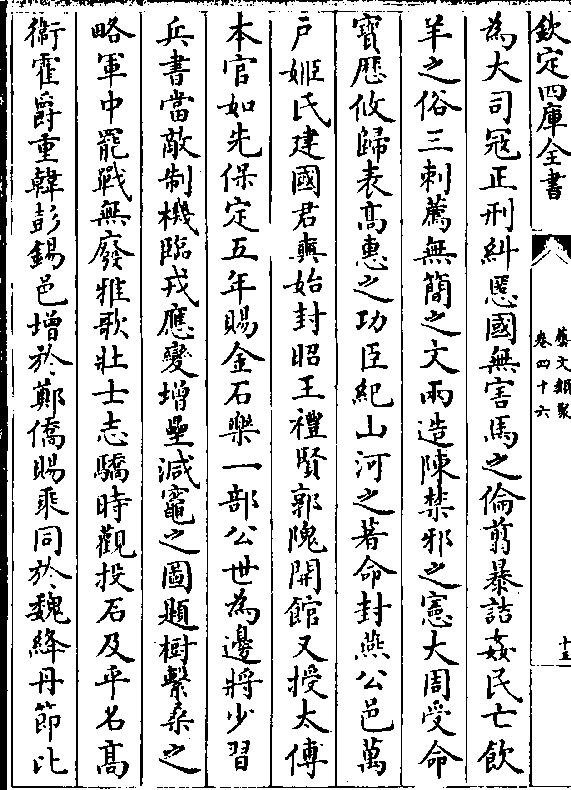 欽定四庫全書
藝文類聚
卷四十六
十五
為大司冦正刑糾慝國無害馬之倫翦暴詰姦民亡飲
羊之俗三刺薦無簡之文兩造陳禁邪之憲大周受命
寳歴攸歸表髙惠之功臣紀山河之著命封燕公邑萬
戸姬氏建國君奭始封昭王禮賢郭隗開館又授太傅
本官如先保定五年賜金石樂一部公世為邊將少習
兵書當敵制機臨戎應變增壘減竈之圖題樹繫桑之
略軍中罷戰無廢雅歌壯士志驕時觀投石及平名髙
衛霍爵重韓彭錫邑增於鄭僑賜乘同於魏絳丹節比